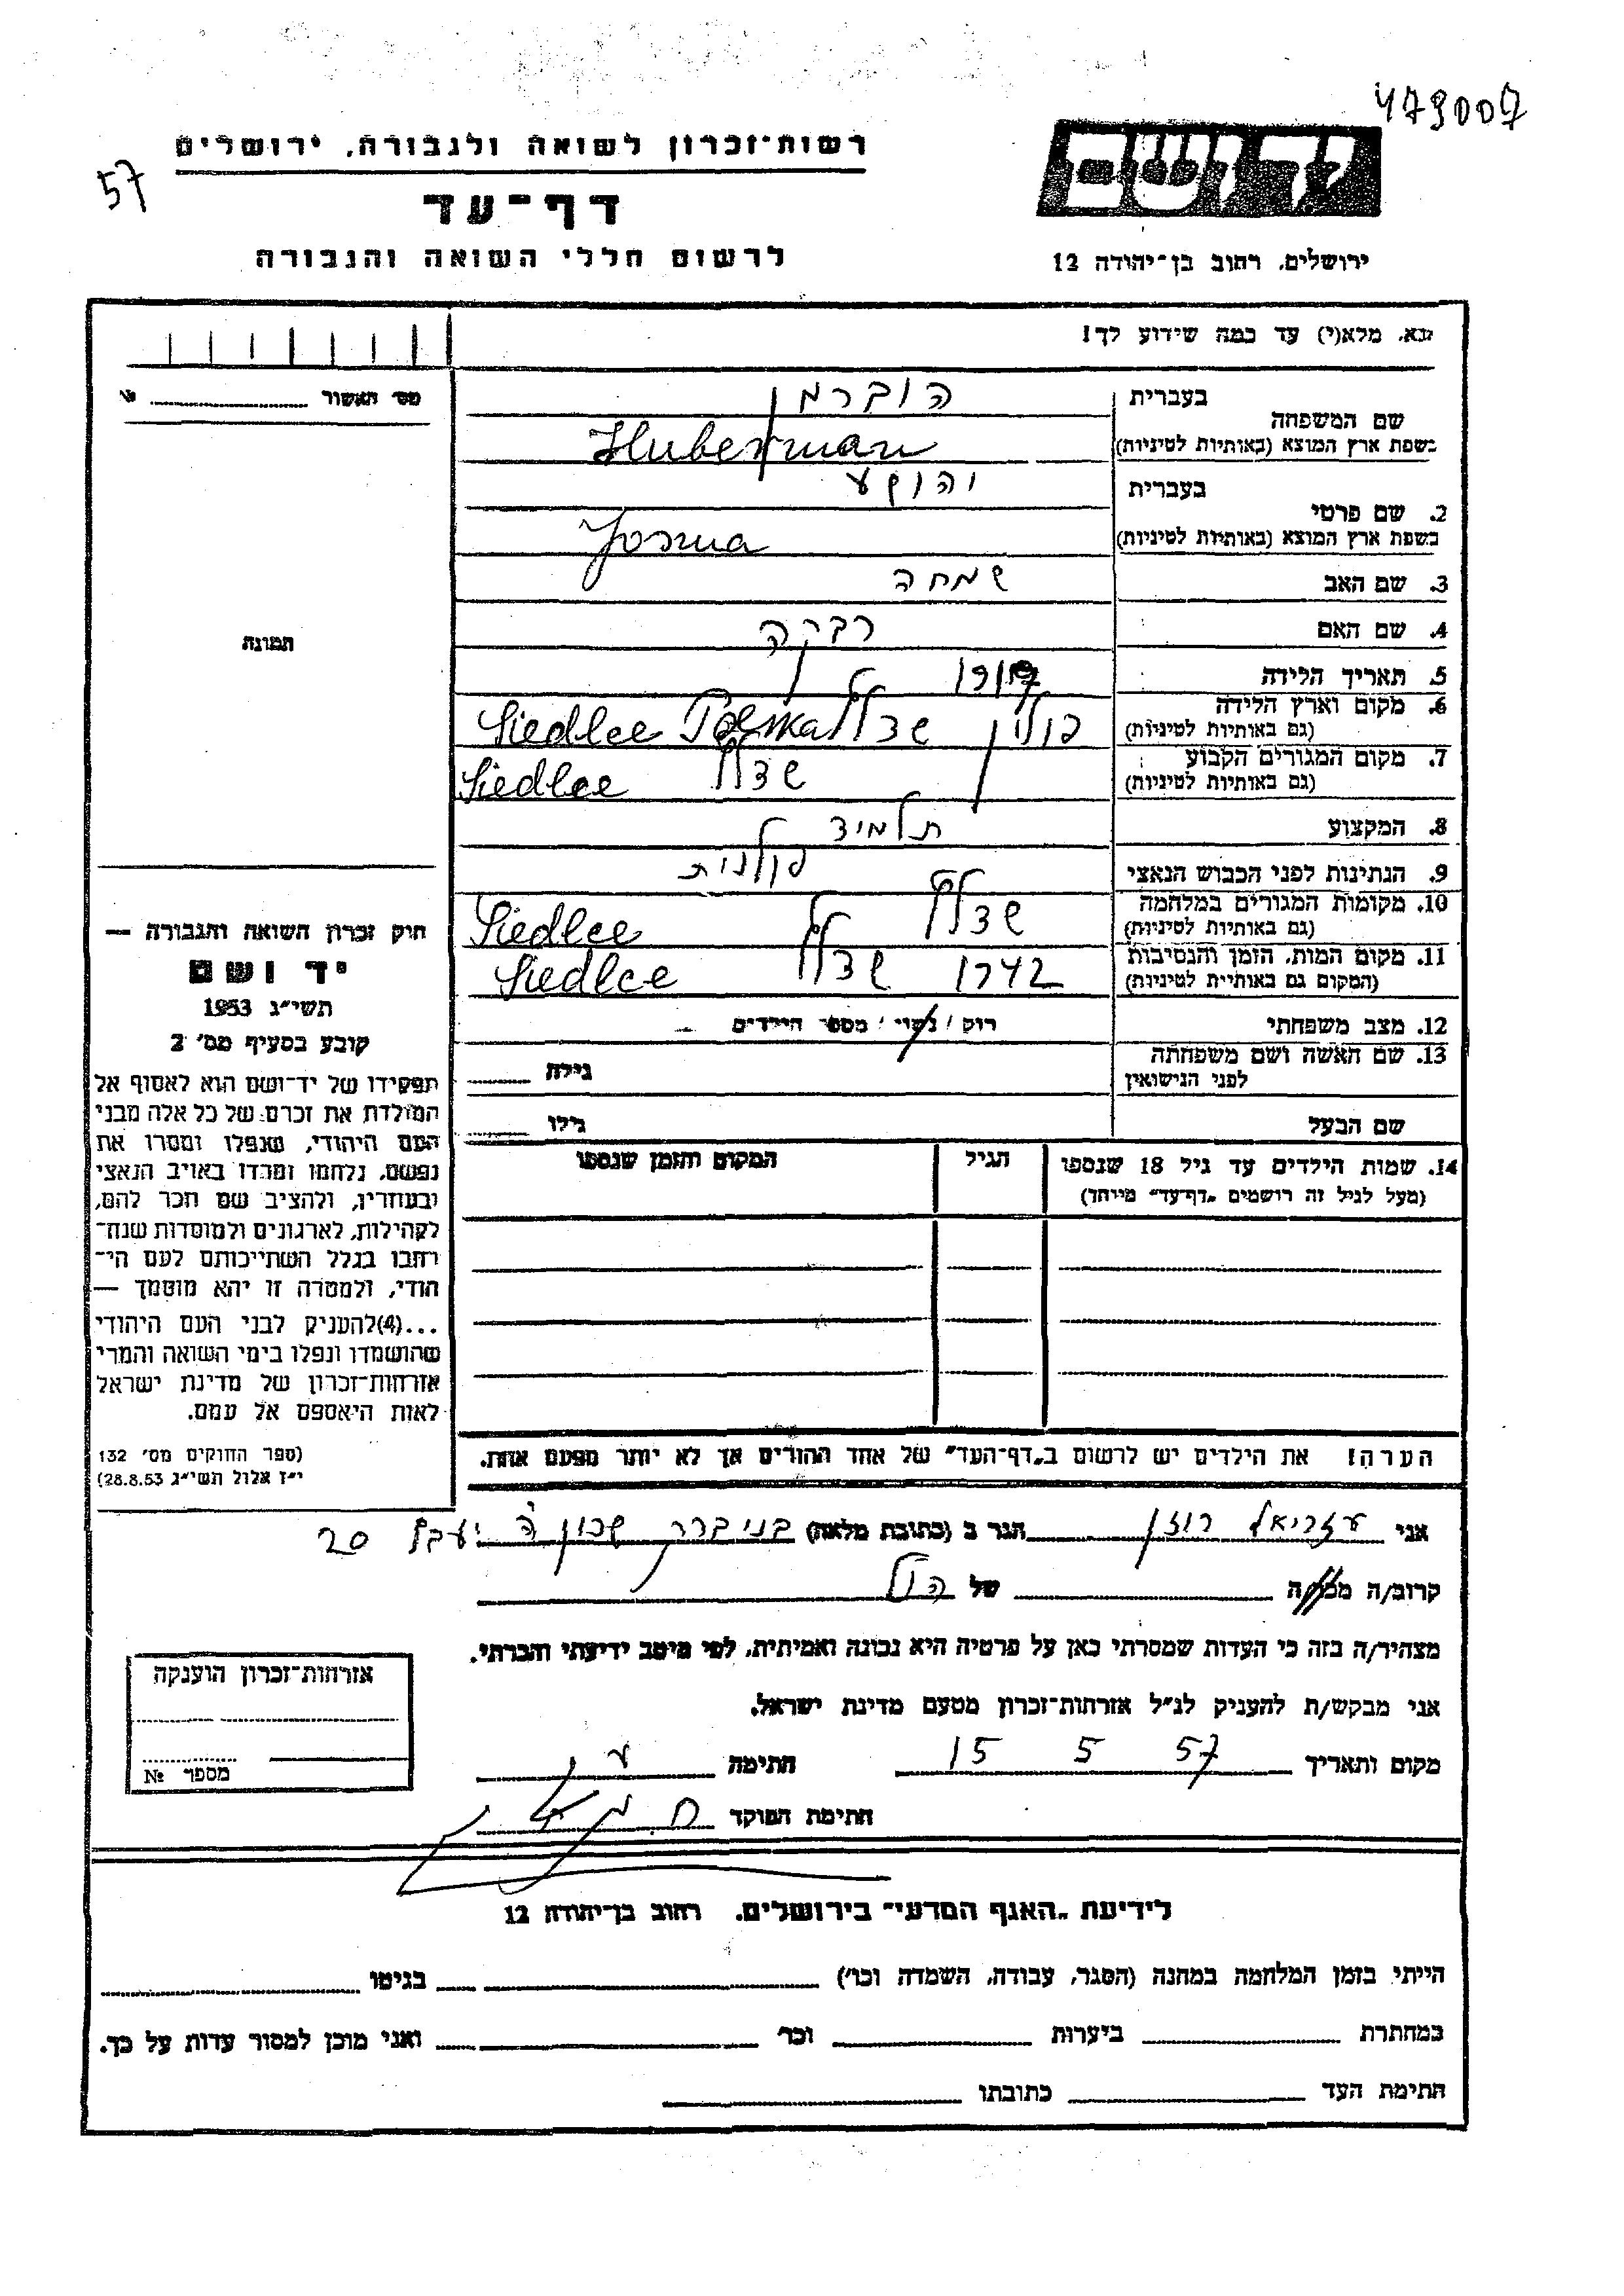 479007
רשות־זכרון לשואה ולגבורה, ירושלים
57
דף־עד
לרשום חללי השואה והגבורה
יד ושם
ירושלים, רחוב בן־יהודה 12
נא, מלא(י) עד כמה שידוע לך!
מס' האשור
שם המשפחה
בעברית הוברמן
בשפת ארץ המוצא (באותיות לטיניות) Huberman
2. שם פרטי
בעברית יהושע
בשפת ארץ המוצא (באותיות לטיניות) Josua
3. שם האב שמחה
4. שם האם רבקה
תמונה
5. תאריך הלידה
6. מקום וארץ הלידה (גם באותיות לטיניות) פולין שדלץ Siedlce Polska
7. מקום המגורים הקבוע (גם באותיות לטיניות) שדלץ Siedlce
8. המקצוע תלמיד
9. הנתינות לפני הכבוש הנאצי פולנית
10. מקומות המגורים במלחמה (גם באותיות לטיניות) שדלץ Siedlce
11. מקום המות, הזמן והנסיבות (המקום גם באותיות לטיניות) 1942 שדלץ Siedlce
12. מצב משפחתי רוק / נשוי / מספר הילדים –
13. שם האשה ושם משפחתה לפני הנישואין גילה
שם הבעל גילו
14. שמות הילדים עד גיל 18 שנספו
(מעל לגיל זה רושמים „דף־עד" מיוחד)
הגיל
המקום והזמן שנספו
חוק זכרון השואה והגבורה —
יד ושם
תשי"ג 1953
קובע בסעיף מס' 2
תפקידו של יד־ושם הוא לאסוף אל
המולדת את זכרם של כל אלה מבני
העם היהודי, שנפלו ומסרו את
נפשם, נלחמו ומרדו באויב הנאצי
ובעוזריו, ולהציב שם וזכר להם,
לקהילות, לארגונים ולמוסדות שנח־
רבו בגלל השתייכותם לעם הי־
הודי, ולמטרה זו יהא מוסמך —
...(4)להעניק לבני העם היהודי
שהושמדו ונפלו בימי השואה והמרי
אזרחות־זכרון של מדינת ישראל
לאות היאספם אל עמם.
(ספר החוקים מס' 132
י"ז אלול תשי"ג 28.8.53)
הערה! את הילדים יש לרשום ב„דף־העד" של אחד ההורים אך לא יותר מפעם אחת.
אני עזריאל רוזן הגר ב (כתובת מלאה) בני ברק שכון ה יעבץ 20
קרוב/ה מכר/ה של הנ"ל
מצהיר/ה בזה כי העדות שמסרתי כאן על פרטיה היא נכונה ואמיתית, לפי מיטב ידיעתי והכרתי.
אני מבקש/ת להעניק לנ"ל אזרחות־זכרון מטעם מדינת ישראל.
מקום ותאריך 15 5 57 חתימה
חתימת הפוקד
אזרחות־זכרון הוענקה
מספר №
לידיעת „האגף המדעי" בירושלים, רחוב בן־יהודה 12
הייתי בזמן המלחמה במחנה (הסגר, עבודה, השמדה וכו') בגיטו
במחתרת ביערות וכו' ואני מוכן למסור עדות על כך.
חתימת העד כתובתו